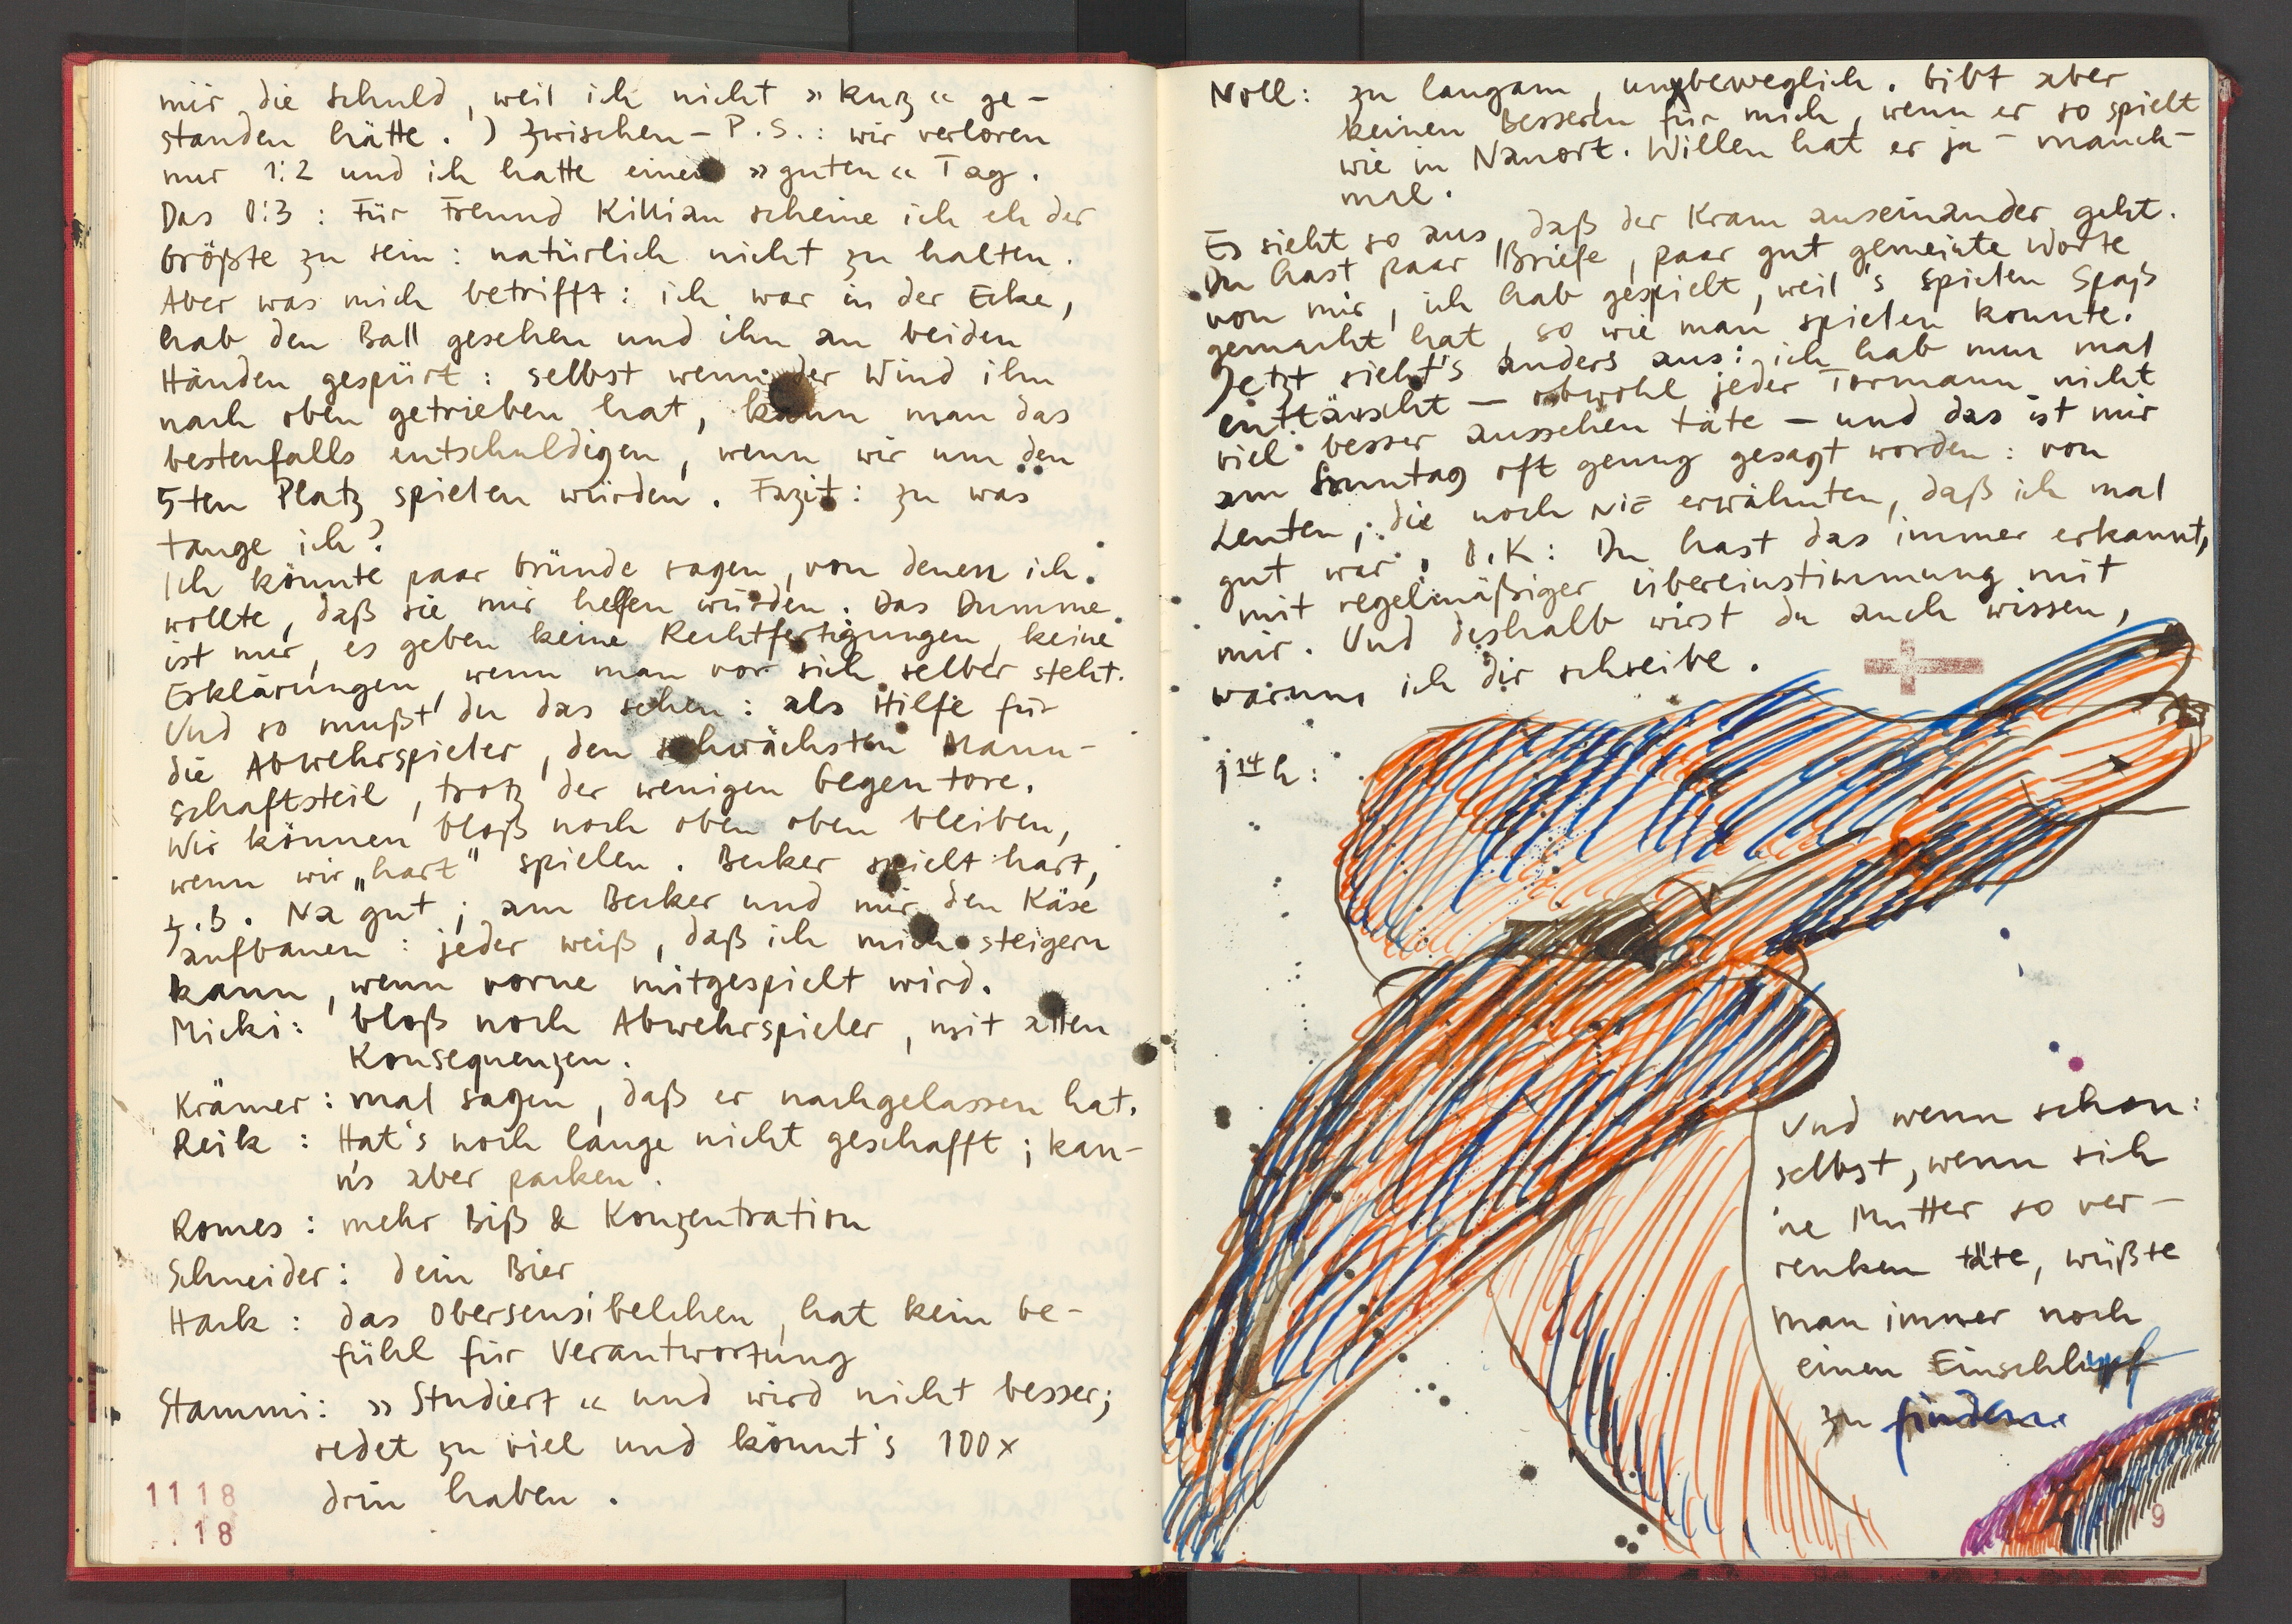 mir die Schuld, weil ich nicht »kurz« ge-
standen hätte.) Zwischen-P.S.: wir verloren
nur 1:2 und ich hatte einen »guten« Tag.
Das 0:3: Für Freund Killian scheine ich eh der
Größte zu sein: natürlich nicht zu halten.
Aber was mich betrifft: ich war in der Ecke,
hab den Ball gesehen und ihn an beiden
Händen gespürt: selbst wenn der Wind ihn
nach oben getrieben hat, kann man das
bestenfalls entschuldigen, wenn wir um den
5-ten Platz spielen würden. Fazit: zu was
tauge ich?
Ich könnte paar Gründe sagen, von denen ich
wollte, daß sie mir helfen würden. Das Dumme
ist nur, es geben keine Rechtfertigungen, keine
Erklärungen, wenn man vor sich selber steht.
Und so mußt du das sehen: als Hilfe für
die Abwehrspieler, den schwächsten Mann-
schaftsteil, trotz der wenigen Gegentore.
Wir können bloß noch oben oben bleiben,
wenn wir „hart" spielen. Becker spielt hart,
z.B. Na gut; am Becker und mir den Käse
aufbauen: jeder weiß, daß ich mich steigern
kann, wenn vorne mitgespielt wird.
Micki: bloß noch Abwehrspieler, mit allen
Konsequenzen.
Krämer: mal sagen, daß er nachgelassen hat.
Reik: Hat's noch lange nicht geschafft; kan-
n's aber packen.
Romes: mehr Biß & Konzentration
Schneider: dein Bier
Hack: das Obersensibelchen, hat kein Ge-
fühl für Verantwortung
Stammi: »Studiert« und wird nicht besser;
redet zu viel und könnt's 100x
drin haben.
1118
18
Noll: zu langam, unbeweglich. Gibt aber
keinen Besseren für mich, wenn er so spielt
wie in Nanort. Willen hat er ja - manch-
mal.
Es sieht so aus, daß der Kram auseinander geht.
Du hast paar Briefe, paar gut gemeinte Worte
von mir, ich hab gespielt, weil's Spielen Spaß
gemacht hat, so wie man spielen konnte.
Jetzt sieht's anders aus: ich hab nun mal
enttäuscht - obwohl jeder Tormann nicht
viel besser aussehen täte - und das ist mir
am Sonntag oft genug gesagt worden: von
Leuten, die noch NIE erwähnten, daß ich mal
gut war. O.K: Du hast das immer erkannt,
mit regelmäßiger Übereinstimmung mit
mir. Und deshalb wirst du auch wissen,
warum ich dir schreibe.
14 h:
Und wenn schon:
selbst, wenn sich
'ne Mutter so ver-
renken täte, wüßte
man immer noch
einen Einschlupf
zu finden.
9